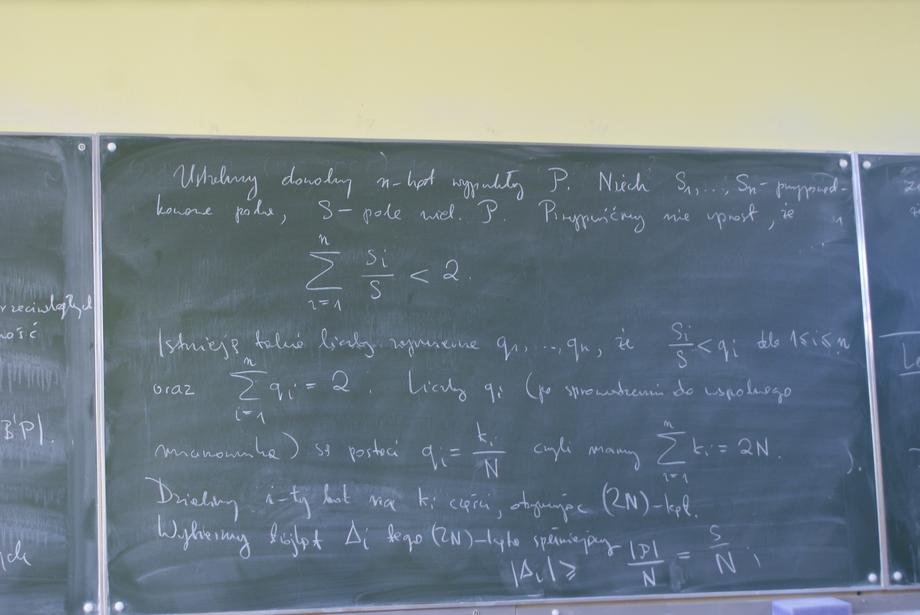 Ustalmy dowolny n-kąt wypukły P. Niech S₁,...,Sₙ - przyporząd-
kowane pola, S - pole wiel. P. Przypuśćmy nie wprost, że
n
∑ Si/S < 2.
i=1
Istnieją takie liczby wymierne q₁,...,qₙ, że Si/S < qi dla 1≤i≤n
oraz ∑ᵢ₌₁ⁿ qi = 2. Liczby qi (po sprowadzeniu do wspólnego
mianownika) są postaci qi = ki/N czyli mamy ∑ᵢ₌₁ⁿ ki = 2N.
Dzielimy i-ty bok na ki części, otrzymując (2N)-kąt.
Wybierzmy trójkąt Δi tego (2N)-kąta spełniający
|Δi| ≥ |P|/N = S/N ;
rzeciwległych
ność
B'P|.
ych